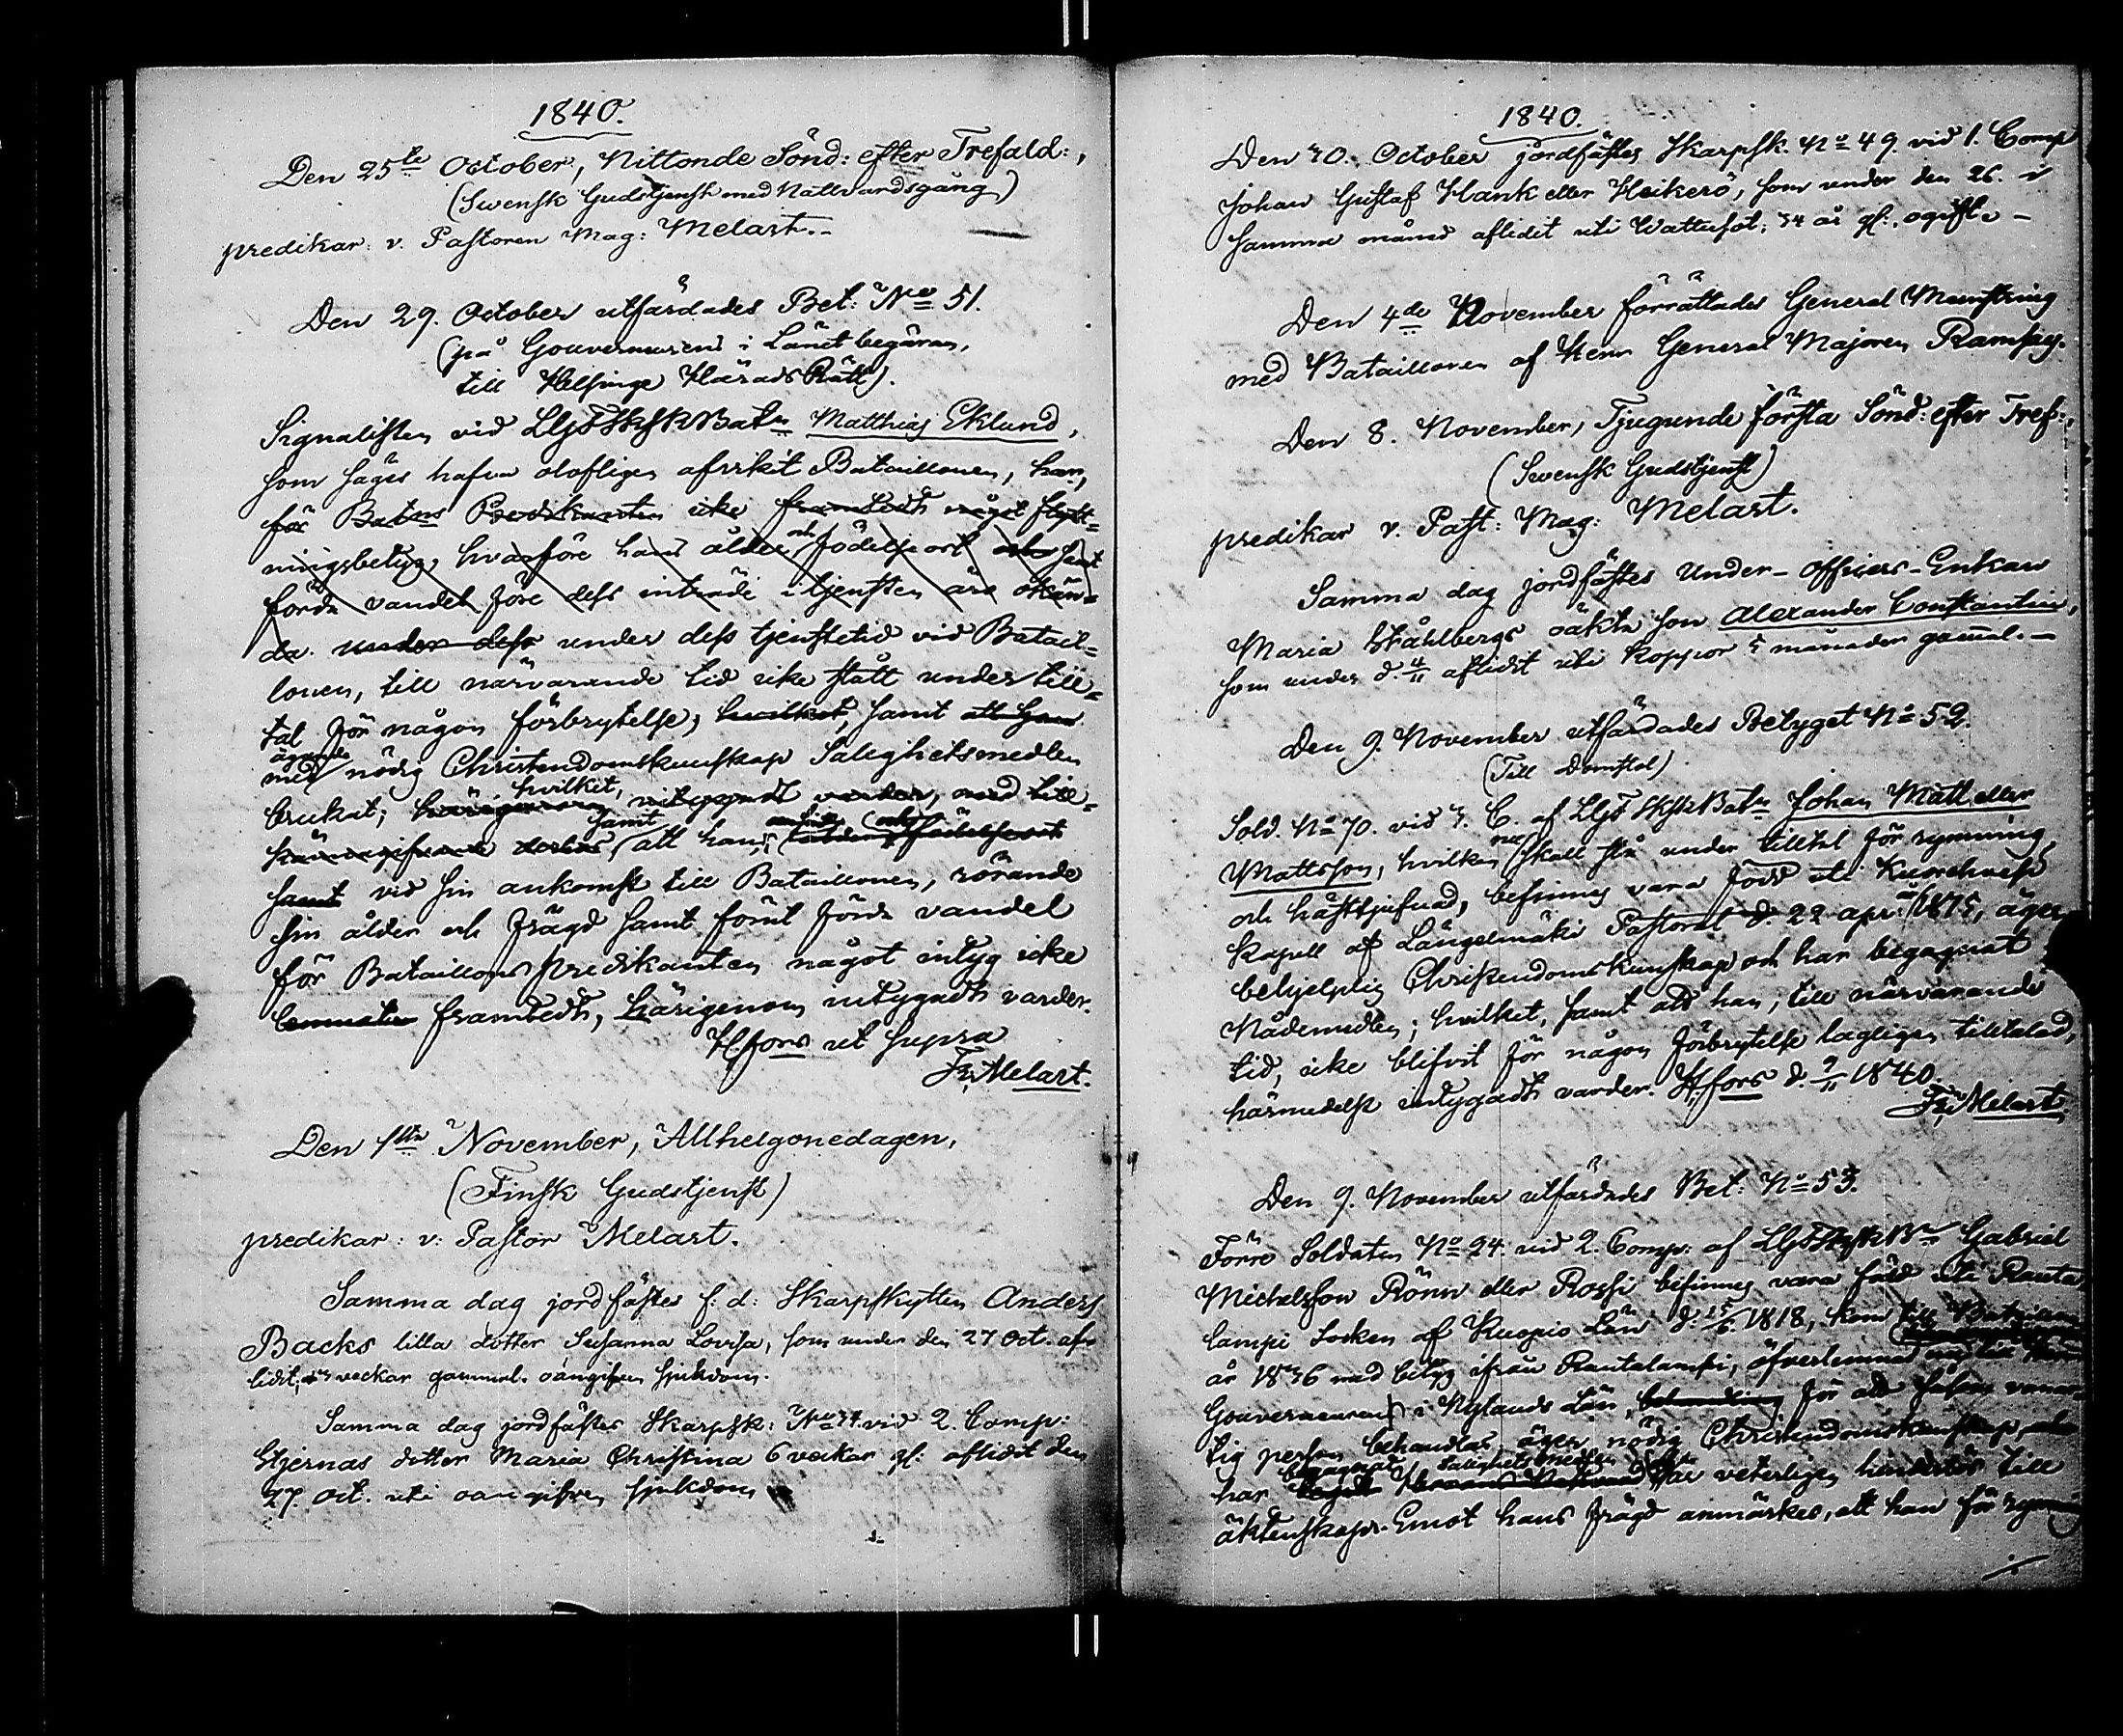 1840.
Den 25te October, Nittonde Sönd: efter Trefald:,
(Swensk Gudstjenst med Nattvardsgång)
predikar: v. Pastoren Mag: Melart.-
Den 29. October utfärdades Bet: No 51.
(på Gouverneurens i Länet begäran,
till Helsinge HäradsRätt).
Signalisten vid LLGSSkskBatn Matthias Eklund,
som säges hafva olofligen afvikit Bataillonen, har,
för Batns Predikanten icke framtedt något flytt=
ningsbetyg, hvarföre hans ålder och födelseort och samt
förda vandel före dess inträde i tjensten äro okän=
da. under dess under dess tjenstetid vid Batail=
lonen, till närvarande tid icke stått under till=
tal för någon förbrytelse; hvilket, samt att han
ägande
med nödig Christendomskunskap Salighetsmedlen
hvilket,
brukat; härigenom intygadt varder, med till=
samt
att han,
samt vid sin ankomst till Bataillonen, rörande
sin ålder och frägd samt förut förda vandel
för Bataillons predikanten något intyg icke
framtedt, härigenom intygadt varder.
H.fors ut supra
Fr. Melart.
Den 1sta November, Allhelgonedagen,
(Finsk Gudstjenst)
predikar: v: Pastor Melart.
Samma dag jordfästes f: d: Skarpskytten Anders
Backs lilla dotter Susanna Lovisa, som under den 27 Oct. af=
lidit, veckor gammal. oangifven sjukdom.
Samma dag jordfästes Skarpsk: No 34. vid 2. Comp:
Stjernas dotter Maria Christina 6 veckor gl. aflidit den
27. Oct. uti oangifven sjukdom
1840.
Den 30. October jordfästes Skarpsk. No 49. vid 1. Comp
Johan Gustaf Hank eller Heikerö, som under den 26. i
samma månad aflidit uti Wattusot; 34 år gl:, ogift. -
Den 4de November förrättades General Munstring
med Bataillonen af Herr General Majoren Ramsay.
Den 8. November, Tjugunde första Sönd: efter Tref:,
(Swensk Gudstjenst)
predikar v. Past: Mag: Melart.
Samma dag jordfästes Under-officers-Enkan
Maria Ståhlbergs oäkta son Alexander Constantin,
som under d. 4/11 aflidit uti Koppor 5 månader gammal. -
Den 9. November utfärdades Betyget No 52.
(Till Domstol).
Sold. No 70. vid 3. C. af LLGS SkskBatn Johan Matt eller
Mattsson, hvilken nu skall stå under tilltal för rymning
och häststjufnad, befinnes vara född uti
Kapell af Längelmäki Pastorat d. 22 apr: år 1815, äger
behjelplig Christendomskunskap och har begagnat
Nådemedlen; hvilket, samt att han, till närvarande
tid, icke blifvit för någon förbrytelse lagligen tilltalad,
härmedelst intygadt varder. H.fors d. 9/11 1840.
Fr. Melart
Den 9. November utfärdades Bet: No 53.
Förre Soldaten No 24. vid 2. Comp: af LLGSSkskBn Gabriel
Michelsson Rönn eller Rossi befinnes vara född uti Ranta,
lampi Socken af Kuopio Län d. 15/6 1818, kom till Bataillonen
år 1836 med betyg ifrån Rantalampi, öfverlemnad
Gouverneuren i Nylands Län, behandling för att såsom varnar=
lig person behandlas, äger nödig Christendomskunskap,
begagnat Salighetsmedlen
har veterligen hinderlös till
äktenskap. Emot hans frägd anmärkes, att han för rymning
./.